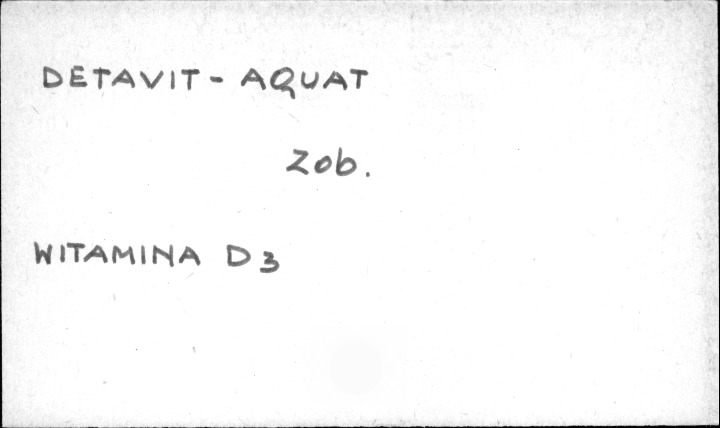 DETAVIT - AQUAT
Zob.
WITAMINA D3